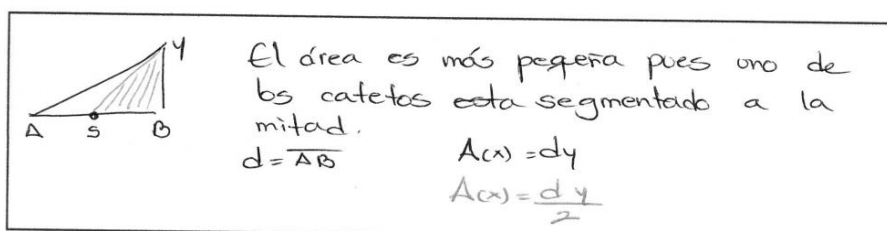 El área es más pequeña pues uno de
los catetos esta segmentado a la
mitad.
A S B Y
d = \overline{AB} A(x) = dy
A(x) = \frac{d y}{2}